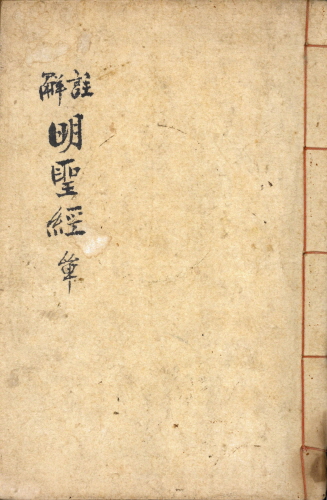 註解
明聖經
單